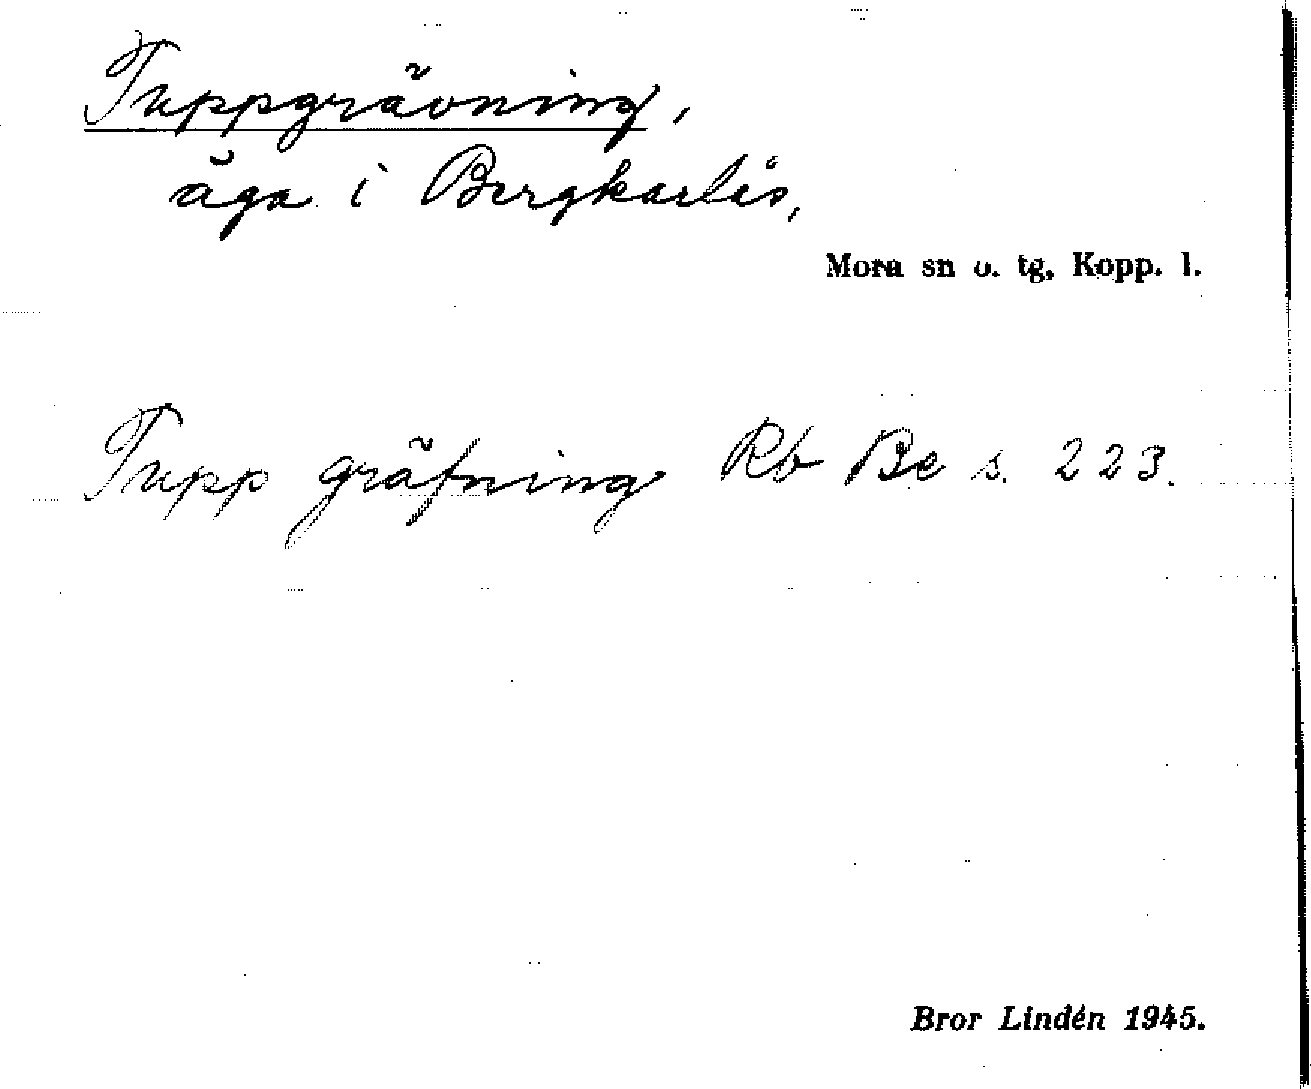 Tuppgrävning,
äga i Bergkarlås,
Mora sn o. tg, Kopp. l.
Tupp gräfning Rb Be s. 223.
Bror Lindén 1945.